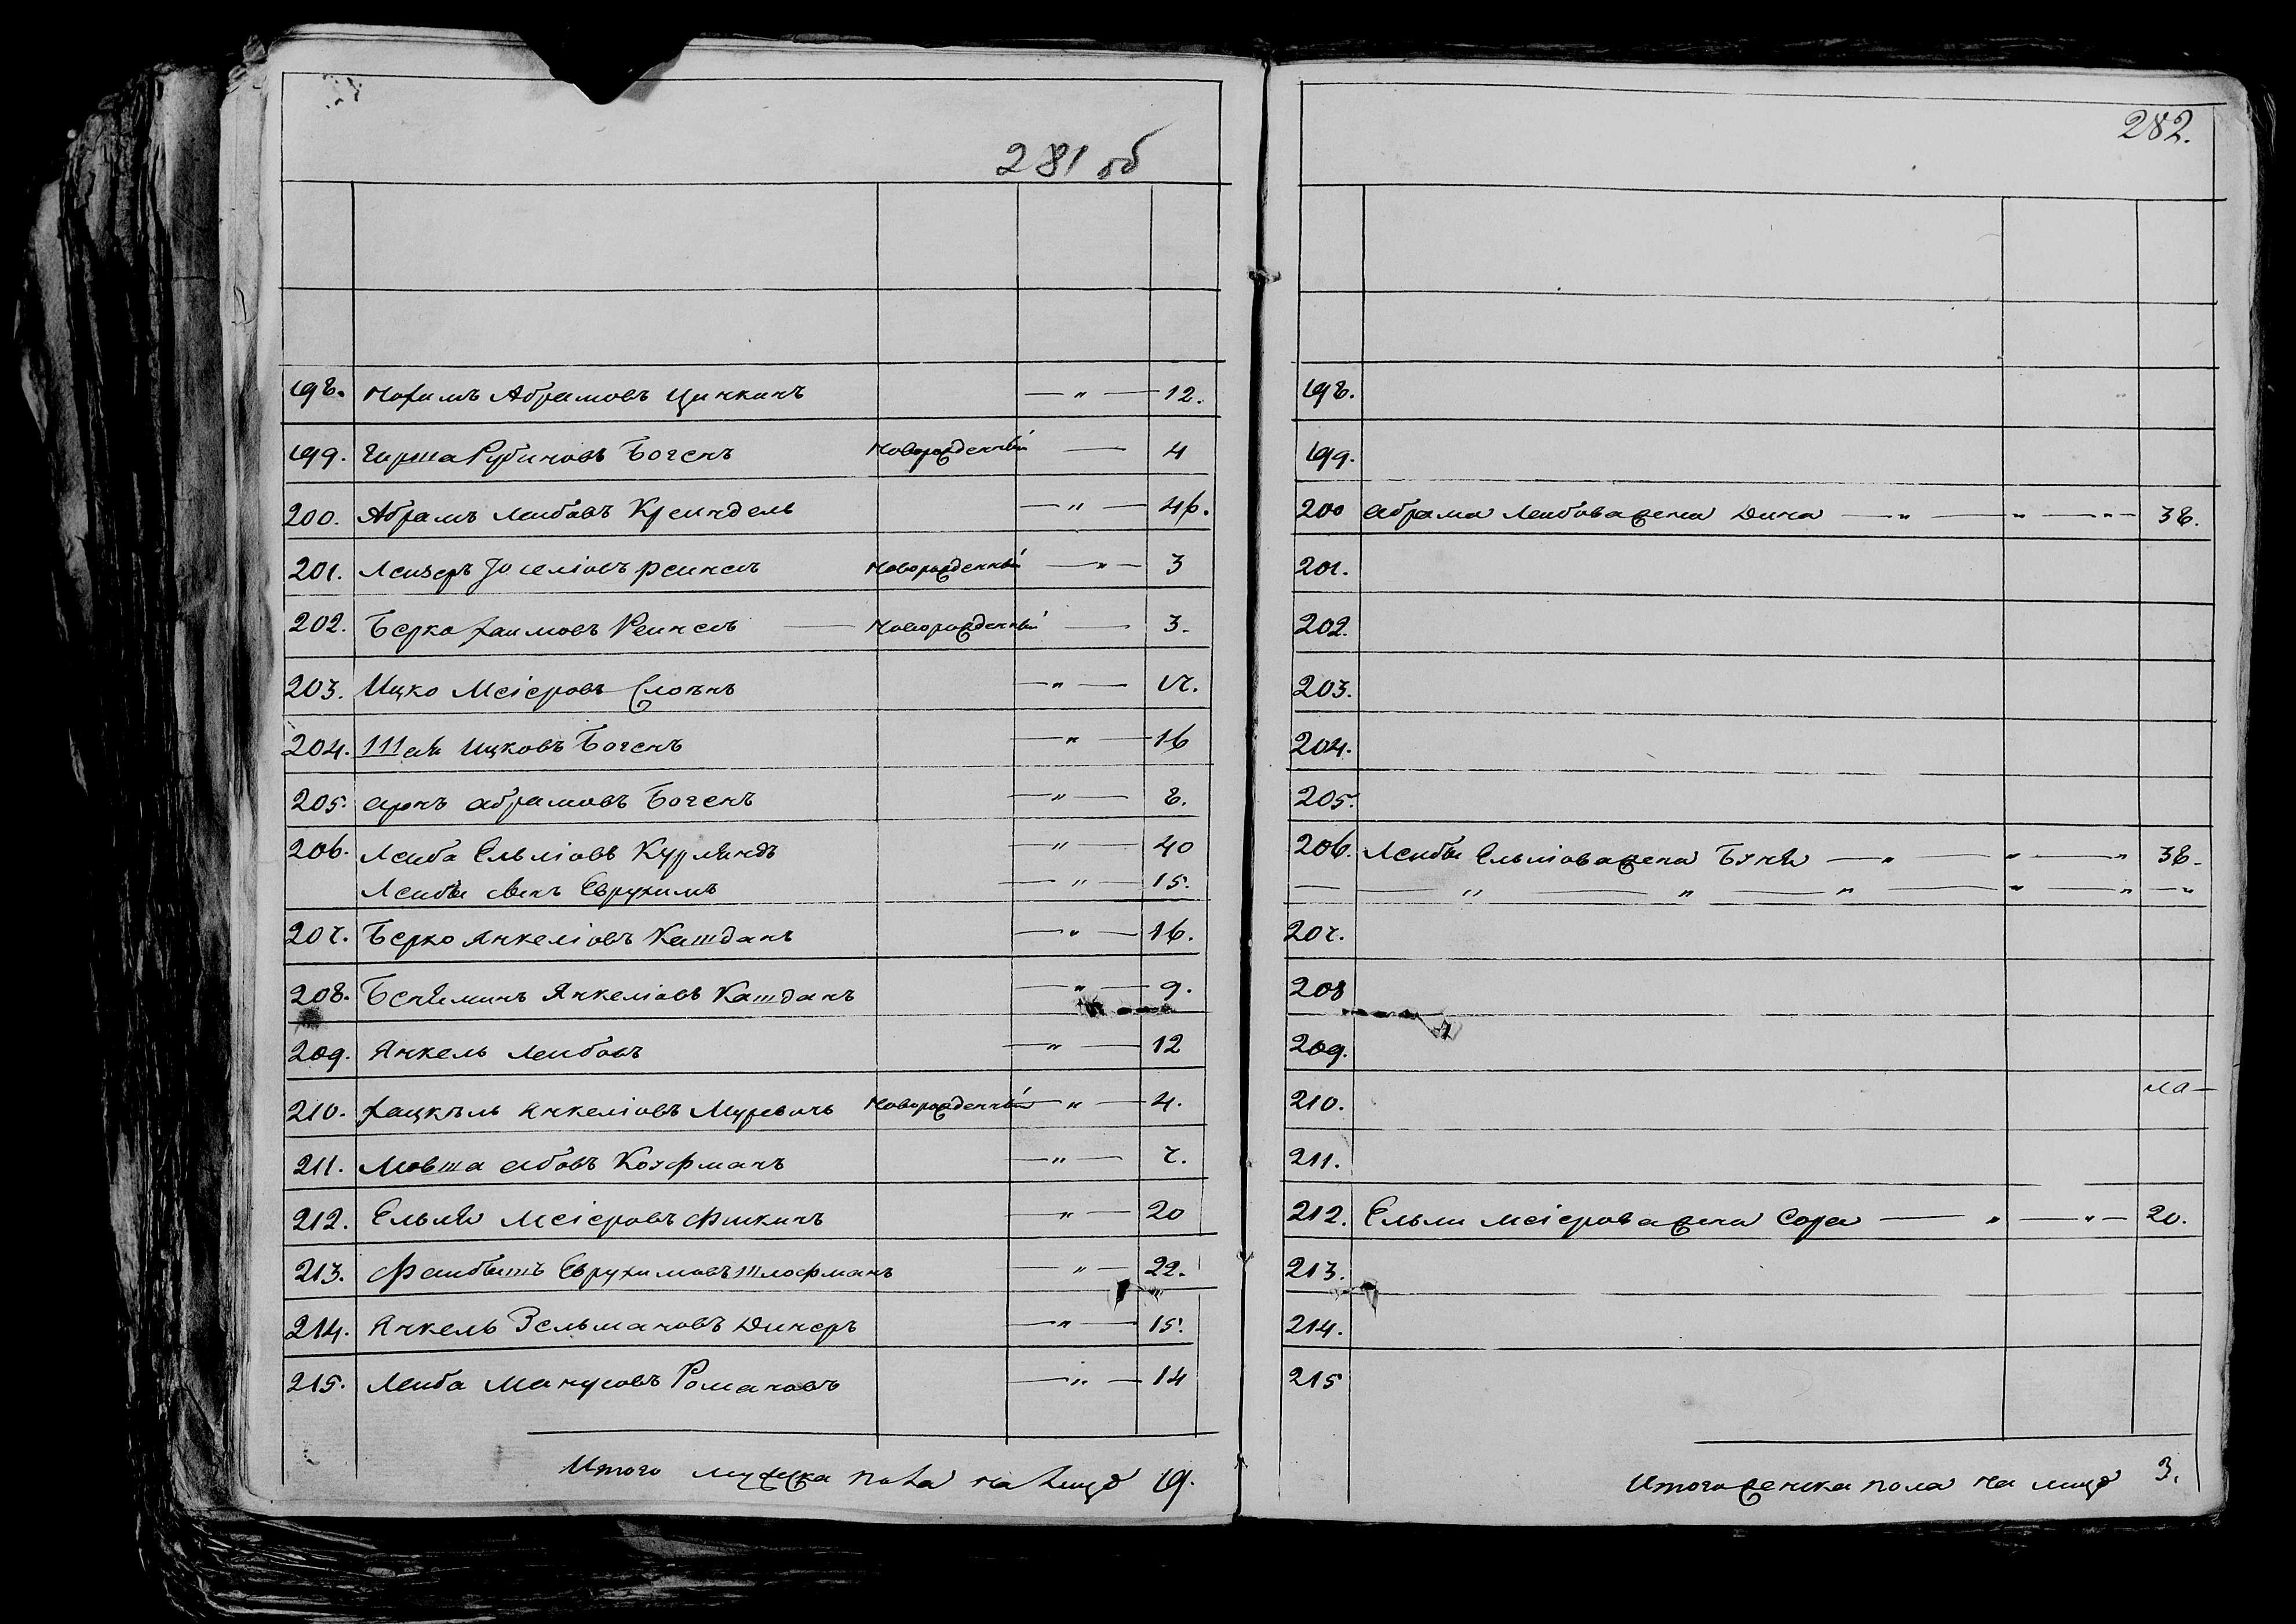 281 об
198. Нохимъ Абрамовъ Цинкинъ — " — 12.
199. Гирша Рубиновъ Богенъ Новорожденный — 4
200. Абрамъ Леибовъ Креиндель — " — 46.
201. Леизеръ Іоселіовъ Реинсъ Новорожденный — " — 3
202. Берко Хаимовъ Реинсъ — Новорожденный — 3.
203. Ицко Меіеровъ Слоѣнъ — " — 17.
204. Шая Ицковъ Богенъ — " — 16
205. Аронъ Абрамовъ Богенъ — " — 8.
206. Леиба Ельліовъ Курляндъ " — 40
Леибы сынъ Еврухимъ — " — 15.
207. Берко Янкеліовъ Кашданъ — " — 16.
208. Беняминъ Янкеліовъ Кашданъ — " — 9.
209. Янкель Леибовъ — " — 12
210. Хацкѣль Янкеліовъ Муревичь Новорожденный — " — 4.
211. Мовша Абовъ Кохфманъ — " — 7.
212. Ельля Меіеровъ Фишкинъ — " — 20
213. Фаибышъ Еврухимовъ — " — 22.
214. Янкель Зельмановъ Динеръ — " — 15.
215. Леиба Манусовъ Романовъ — " — 14
Итого мужеска пола на лицо 19.
282.
198.
199.
200 Абрама Леибова жена Дина — " — " — " — 38.
201.
202.
203.
204.
205.
206. Леибы Ельліова жена Буня — " — " — " 38.
— — " — " — " — " — " — "
207.
208
209.
210.
211.
212. Ельли Меіерова жена Сора — " — " — 20.
213.
214.
215
Итого женска пола на лицо 3.